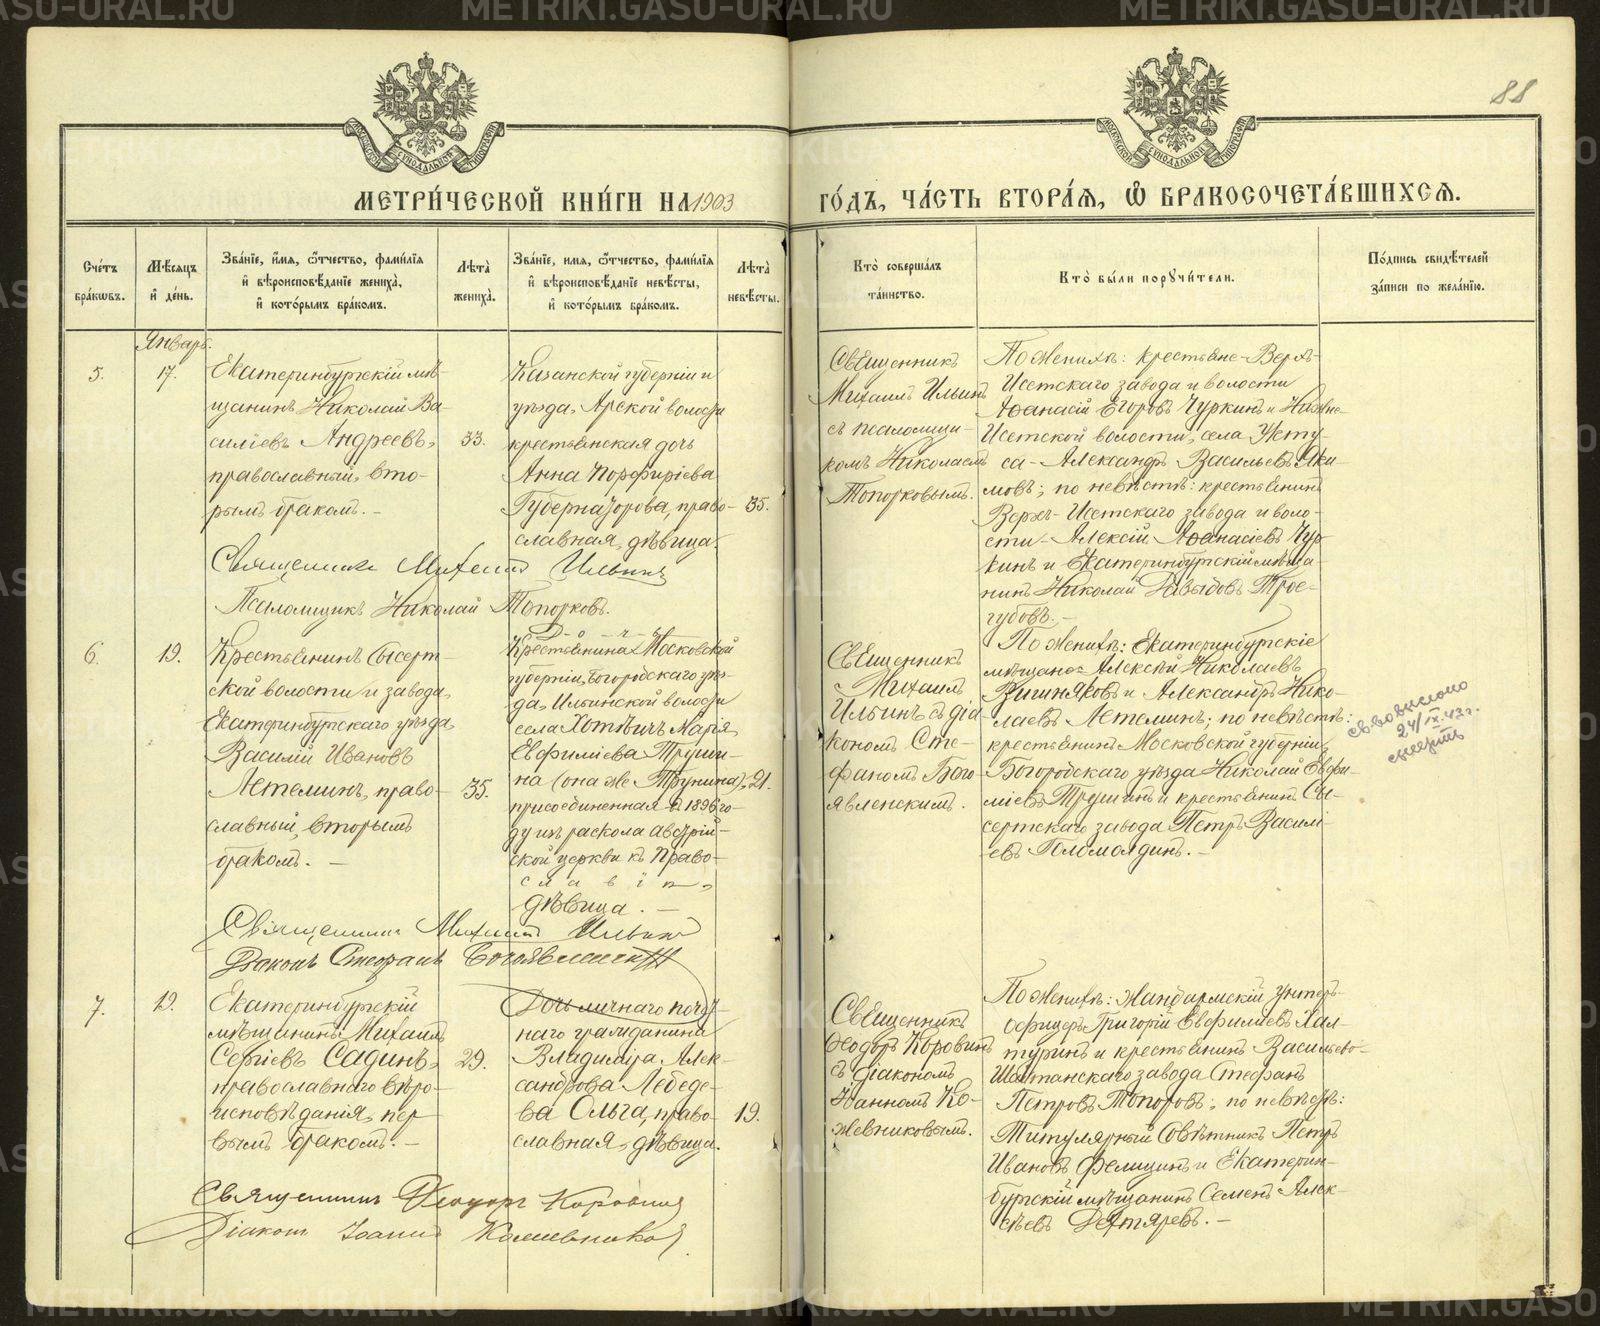 88
МЕТРИ́ЧЕСКОЙ КНИ́ГИ НА 1903
ГО́ДЪ, ЧА́СТЬ ВТОРА́Я, Ѡ҆ БРАКОСОЧЕТА́ВШИХСЯ.
Сче́тъ бра́кѡвъ.
Мѣ́сяцъ и҆ де́нь.
Зва́нїе, и҆́мя, ѻ҆́тчество, фами́лїя
и҆ вѣроисповѣ́данїе жениха̀,
и҆ кото́рымъ бра́комъ.
Лѣта̀ жениха̀.
Зва́нїе, имя, ѻ҆́тчество, фами́лїя
и҆ вѣроисповѣ́данїе невѣ́сты,
и҆ кото́рымъ бра́комъ.
Лѣта̀ невѣ́сты.
Кто̀ соверша́лъ
та́инство.
Кто̀ бы́ли порꙋчи́тели.
По́дпись свидѣ́телей
за́писи по жела́нїю.
Январь.
5.
17.
Екатеринбургскій мѣ-
щанинъ Николай Ва-
силіевъ Андреевъ,
православный, вто-
рымъ бракомъ. -
33.
Казанской губерніи и
уѣзда, Арской волости
крестьянская дочь
Анна Порфиріева
Губерназорова, право-
славная, дѣвица.
35.
Священникъ
Михаилъ Ильинъ
съ псаломщи-
комъ Николаемъ
Топорковымъ.
По женихѣ: крестьяне - Верхъ-
Исетскаго завода и волости
Аѳанасій Егоровъ Чуркинъ и Нижне-
Исетской волости, села Укту-
са - Александръ Васильевъ Яки-
мовъ; по невѣстѣ: крестьянинъ
Верхъ-Исетскаго завода и воло-
сти - Алексій Аѳанасіевъ Чур-
кинъ и Екатеринбургскій мѣща-
нинъ Николай Давыдовъ Трое-
губовъ. -
Священникъ Михаилъ Ильинъ
Псаломщикъ Николай Топорковъ.
6.
19.
Крестьянинъ Сысерт-
ской волости и завода,
Екатеринбургскаго уѣзда,
Василій Ивановъ
Летеминъ, право-
славный, вторымъ
бракомъ. -
35.
Дочь
Крестьянина Московской
губерніи, Богородскаго уѣз-
да, Ильинской волости
села Хотѣичъ Марія
Евфиміева Труши-
на (она же Трунина),
присоединенная въ 1896 го-
ду изъ раскола австрій-
ской церкви къ право-
славію,
дѣвица. -
21.
Священникъ
Михаилъ
Ильинъ съ діа-
кономъ Сте-
фаномъ Бого-
явленскимъ.
По женихѣ: Екатеринбургскіе
мѣщане - Алексѣй Николаевъ
и Александръ Нико-
лаевъ Летеминъ; по невѣстѣ:
крестьянинъ Московской губерніи,
Богородскаго уѣзда Николай Евфи-
міевъ Трушинъ и крестьянинъ Сы-
сертскаго завода Петръ Василі-
евъ Поломолдинъ. -
24/IX 43 г.
Священникъ Михаилъ Ильинъ
Діаконъ Стефанъ Богоявленскій
7.
19.
Екатеринбургскій
мѣщанинъ Михаилъ
Сергіевъ Садинъ,
православнаго вѣро-
исповѣданія, пер-
вымъ бракомъ. -
29.
Дочь личнаго почет-
наго гражданина
Владиміра Алек-
сандрова Лебеде-
ва Ольга, право-
славная, дѣвица.
19.
Священникъ
Ѳеодоръ Коровинъ
съ діакономъ
Іоанномъ Ко-
жевниковымъ.
По женихѣ: Жандармскій унтеръ-
офицеръ Григорій Евфиміевъ Хал-
туринъ и крестьянинъ Васильево-
Шайтанскаго завода Стефанъ
Петровъ Топоровъ; по невѣстѣ:
Титулярный Совѣтникъ Петръ
Ивановъ Фелицинъ и Екатерин-
бургскій мѣщанинъ Семенъ Алек-
сѣевъ Дегтяревъ. -
Священникъ Ѳеодоръ Коровинъ
Діаконъ Іоаннъ Кожевниковъ